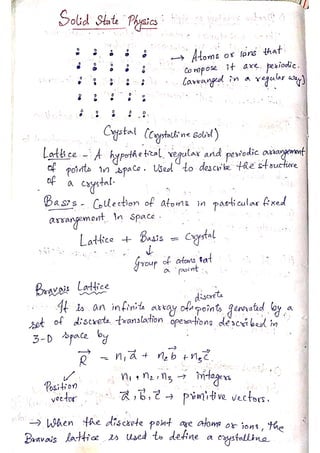 Solid State Physics
→ Atoms or ions that
compose it are periodic.
(arranged in a regular way)
Crystal (Crystalline solid)
Lattice - A hypothetical regular and periodic arrangement
of points in space. Used to describe the structure
of a crystal.
Basis - Collection of atoms in particular fixed
arrangement in space.
Lattice + Basis = Crystal
↓
Group of atoms sat
a point.
Bravais Lattice
It is an infinite array of discrete points generated by a
set of discrete translation operations described in
3-D space by
R⃗ = n₁a⃗ + n₂b⃗ + n₃c⃗
Position vector
n₁, n₂, n₃ → integers
a⃗, b⃗, c⃗ → primitive vectors.
→ When the discrete point are atoms or ions, the
Bravais lattice is used to define a crystalline